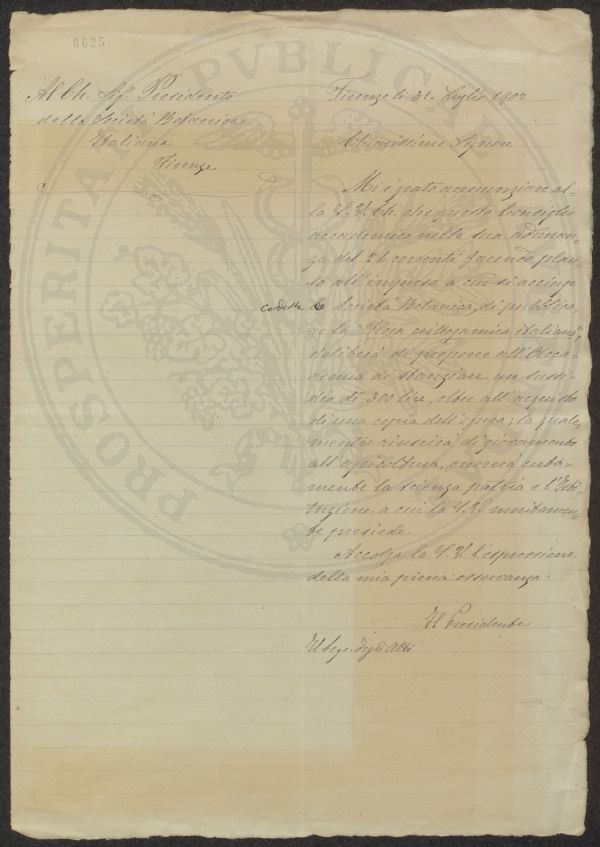 6625
Al Ch. Sig. Presidente
della Società Botanica
Italiana
Firenze
Firenze li 31. Luglio 1902
Chiarissimo Signore
Mi è grato annunziare al-
la S. V. Ch. che questo Consiglio
accademico nella sua adunan-
za del 26 corrente facendo plau-
so all'impresa a cui si accinge
codesta Società Botanica, di pubblica-
re la "Flora crittogamica italiana",
deliberò di proporre all'Acca-
demia di stanziare un sussi-
dio di 300 lire, oltre all'acquisto
di una copia dell'opera; la quale,
mentre riuscirà di giovamento
all'agricoltura, onorerà certa-
mente la scienza patria e l'Isti-
tuzione a cui la S. V. meritamen-
te presiede.
Accolga la S. V. l'espressione
della mia piena osservanza.
Il Presidente
Il Seg. degli Atti
PROSPERITATI PVBLICAE